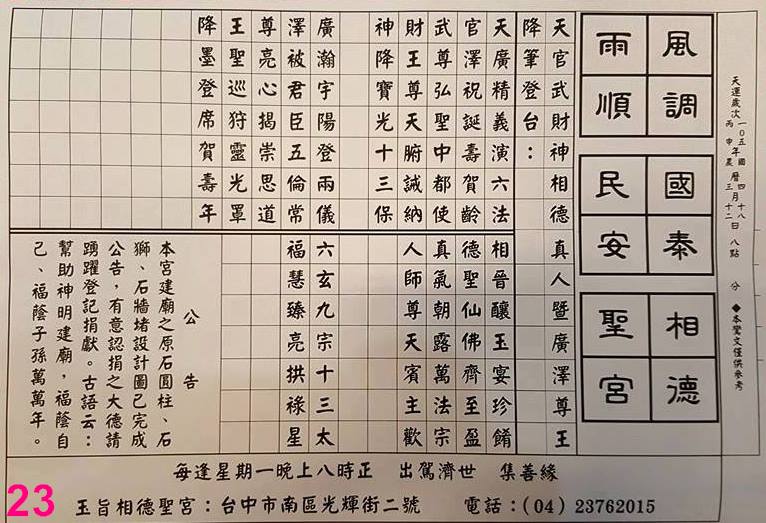 天運歲次 一〇五年國四十八
丙申農曆三月十二日 八點 分 ◆本鸞文僅供參考
風調雨順
國泰民安
相德聖宮
天官武財神相德真人暨廣澤尊王
降筆登台：
天廣精義演六法 相晉釀玉宴珍餚
官澤祝誕壽賀齡 德聖仙佛齊至盈
武尊弘聖中都使 真氣朝露萬法宗
財王尊天腑誠納 人師尊天賓主歡
神降寶光十三保
廣瀚宇陽登兩儀 六玄九宗十三太
澤被君臣五倫常 福慧臻亮拱祿星
尊亮心揭崇思道
王聖巡狩靈光罩
降墨登席賀壽年
公告
本宮建廟之原石圓柱、石
獅、石牆堵設計圖已完成
公告，有意認捐之大德請
踴躍登記捐獻。古語云：
幫助神明建廟，福蔭自
己、福蔭子孫萬萬年。
每逢星期一晚上八時正 出駕濟世 集善緣
玉旨相德聖宮：台中市南區光輝街二號 電話：(04) 23762015
23